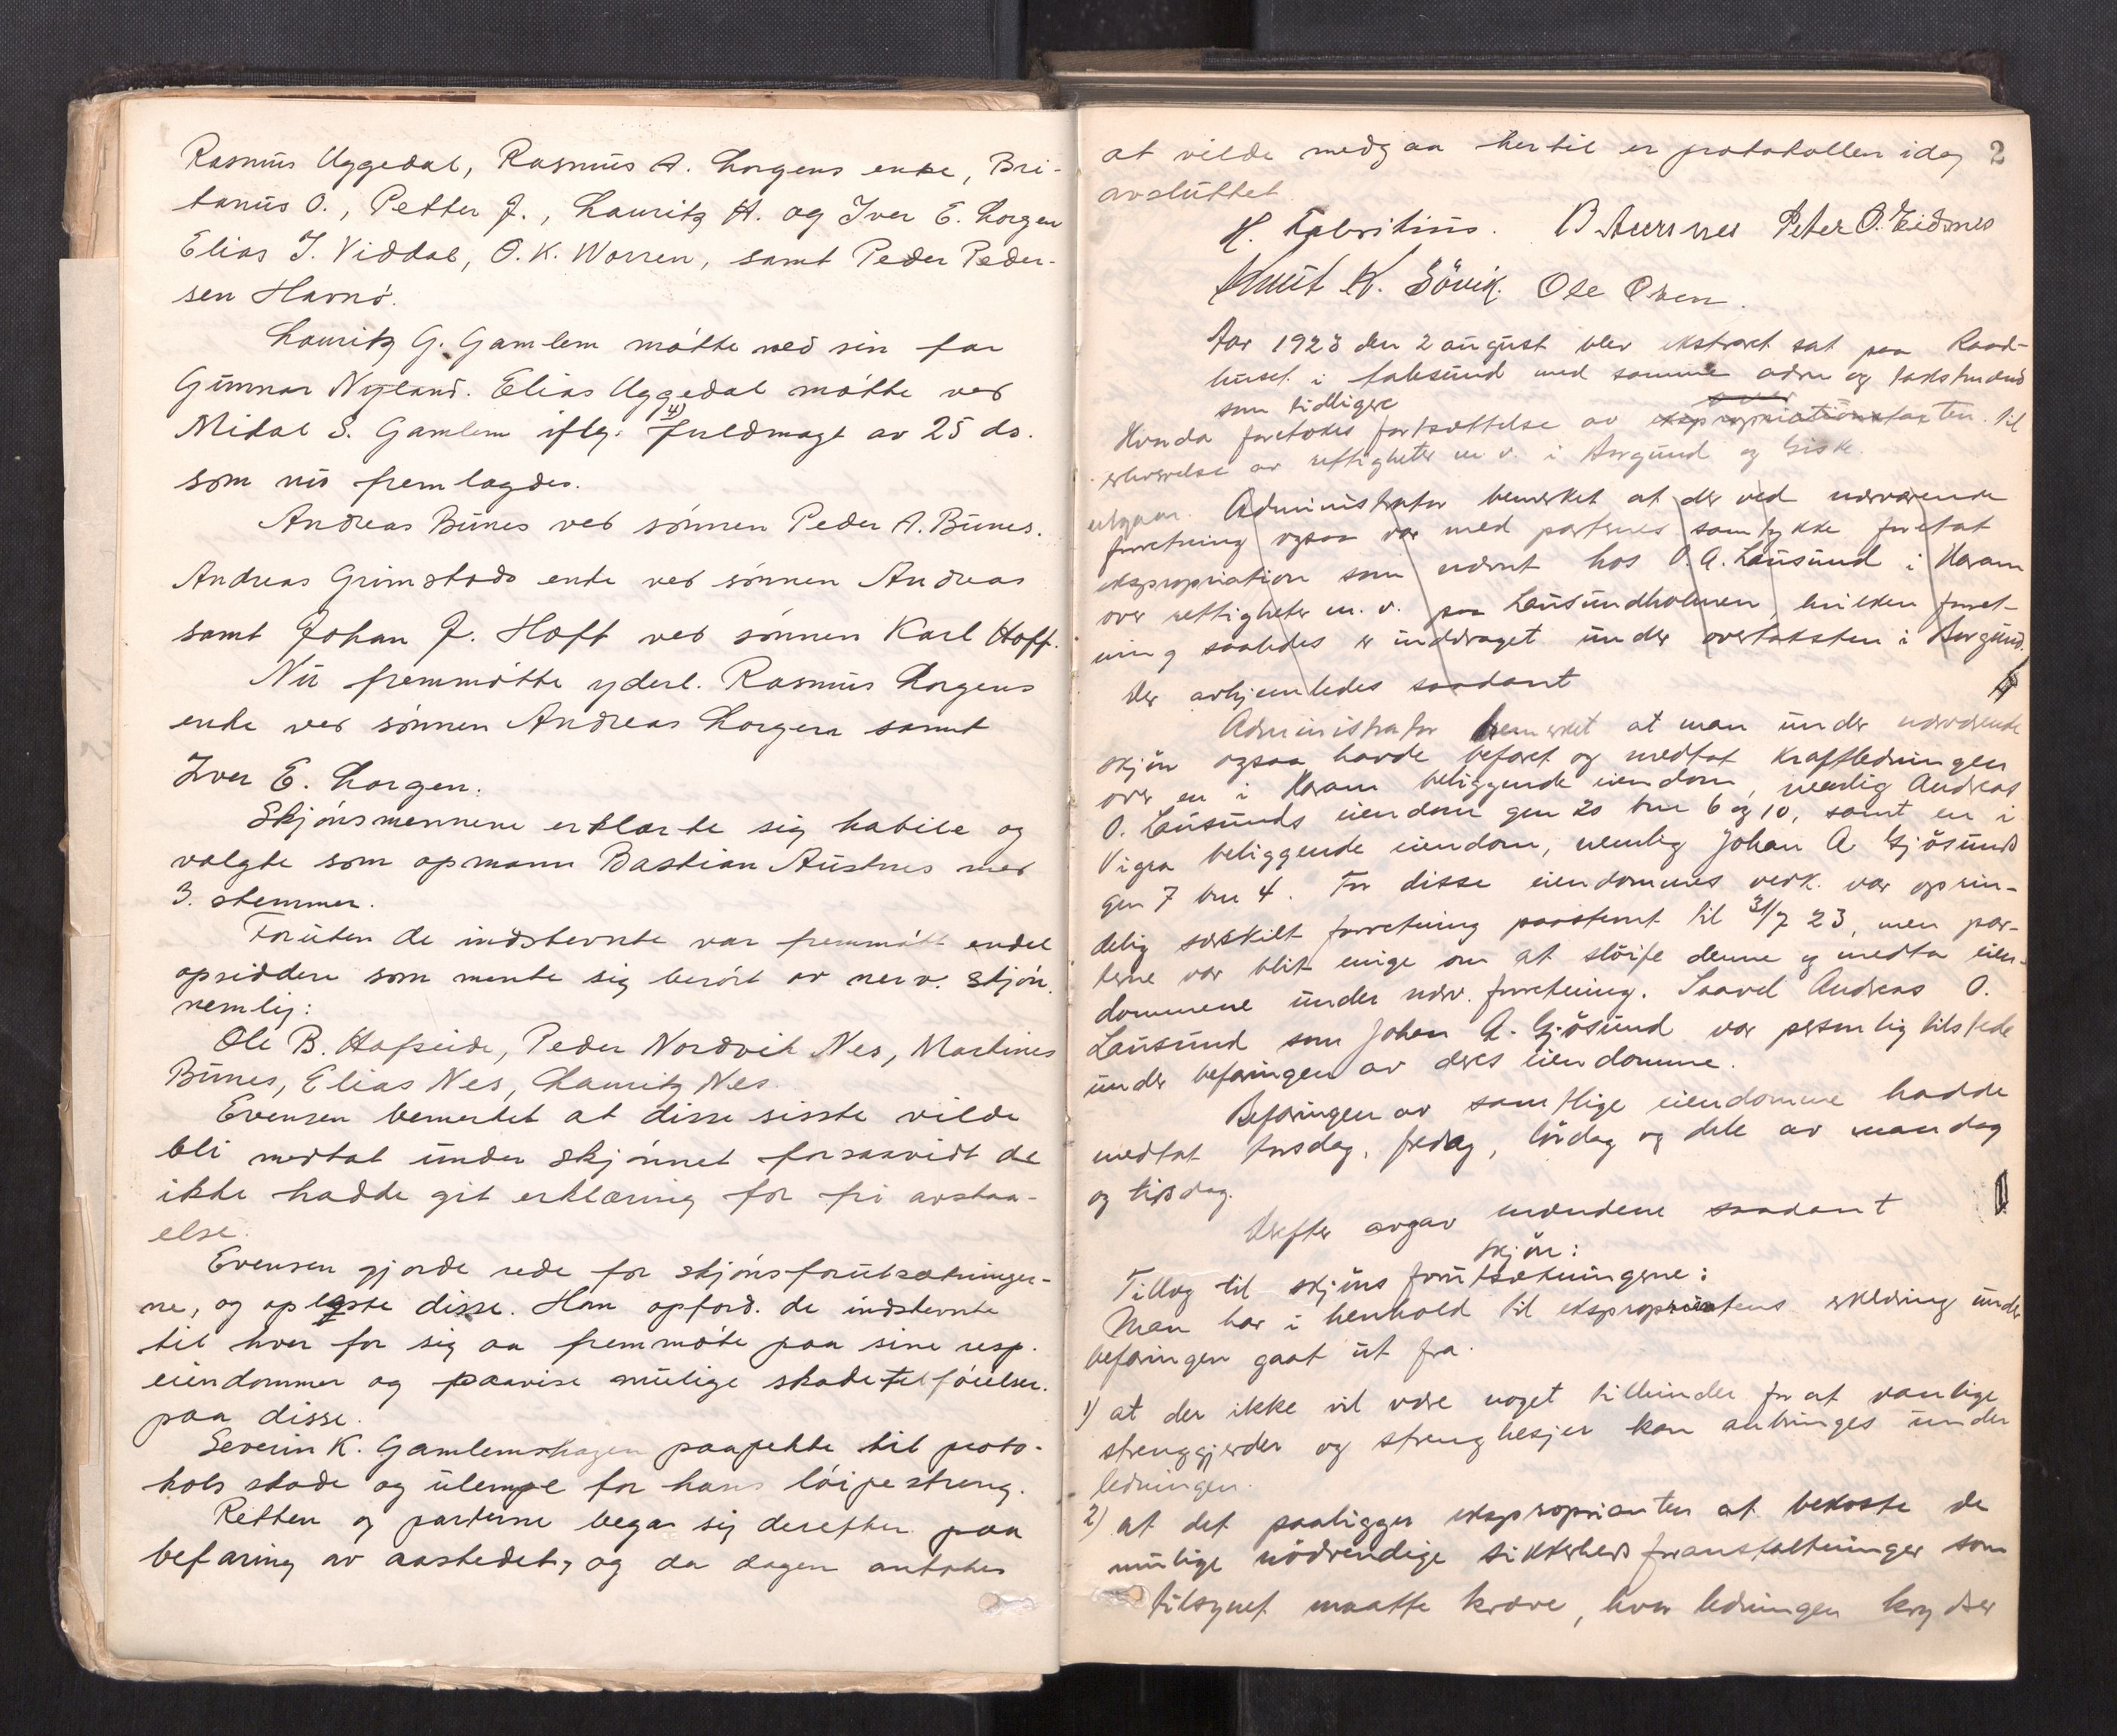 Rasmus Uggedal, Rasmus A. Lorgens enke, Bri-
tanus O., Petter J., Lauritz A. og Iver E. Lorgen
Elias J. Viddal, O. K. Worren, samt Peder Peder-
sen Havnö.
Lauritz G. Gamlem mötte ved sin far
Gunnar Nyland. Elias Uggedal mötte ved
Mikal S. Gamlem iflg. 4) fuldmagt av 25 ds.
som nu fremlagdes.
Andreas Bunes ved sönnen Peder A. Bunes.
Andreas Grimstads enke ved sönnen Andreas
samt Johan J. Hoff ved sönnen Karl Hoff.
Nu fremmötte yderl. Rasmus Lorgens
enke ved sönnen Andreas Lorgen samt
Iver E. Lorgen.
Skjönsmennene erklærte sig habile og
valgte som opmann Bastian Austnes med
3. stemmer.
Foruten de indstevnte var fremmött endel
opsiddere som mente sig berört av nerv. skjön,
nemlig:
Ole B. Hafseide, Peder Nordvik Nes, Martines
Bunes, Elias Nes, Lauritz Nes.
Evensen bemerket at disse sisste vilde
bli medtat under skjönnet forsaavidt de
ikke hadde git erklæring for fri avstaa-
else.
Evensen gjorde rede for skjönsforutsætninger-
ne, og oplæste disse. Han opford. de indstevnte
til hver for sig aa fremmöte paa sine resp.
eiendommer og paavise mulige skadetilföielser.
paa disse.
Severin K. Gamlemshagen paapekte til proto-
kols skade og ulempe for hans löipestreng.
Retten og parterne begav sig derefter paa
befaring av aastedet, og da dagen antokes
at vilde medgaa hertil er protokollen idag 2
avsluttet.
H. Fabritius. B Austnes Peter O. Eidsnes
Knut K. Sövik. Ole Osen.
Aar 1923 den 2 august blev ekstraret sat paa Raad-
huset i Aalesund med samme adm og takstmænd
som tidligere
Hvorda foretokes fortsættelse av ekspropriationstaxten til
erhvervelse av rettigheter m. v. i Borgund og Giske.
utgaar. Administrator bemerket at der ved nærværende
forretning ogsaa var med parternes samtykke foretat
ekspropriation som nævnt hos O. A. Lausund i Haram
over rettigheter m. v. paa Lausundholmen, hvilken forret-
ning saaledes er inddraget under overtaksten i Borgund.
Der avhjemledes saadant
Administrator bemerket at man under nærværende
skjön ogsaa havde befaret og medtat kraftledningen
over en i Haram beliggende eiendom, nemlig Andreas
O. Lausunds eiendom gnr 20 bnr 6 og 10, samt en i
Vigra beliggende eiendom, nemlig Johan A Gjösund
gnr 7 bnr 4. For disse eiendommes vedk. var oprin-
delig særskilt forretning paastevnt til 31/7 23, men par-
terne var blit enige om at slöife denne og medta eien-
dommene under nærv. forretning. Saavel Andreas O.
Lausund som Johan A. Gjösund var personlig tilstede
under befaringen av deres eiendomme.
Befaringen av samtlige eiendomme hadde
medtat torsdag, fredag, lördag og dele av mandag
og tirsdag.
Derefter avgav mændene saadant
skjön:
Tillæg til skjöns forutsætningene:
Man har i henhold til eksproprientens erklæring under
befaringen gaat ut fra.
1) at der ikke vil være noget tilhinder for at vanlige
strenggjerder og strenghesjer kan anbringes under
ledningen.
2) at det paaligger eksproprianten at bekoste de
mulige nödvendige sikkerhedsforanstaltninger som
tilsynet maatte kræve, hvor ledningen krydser